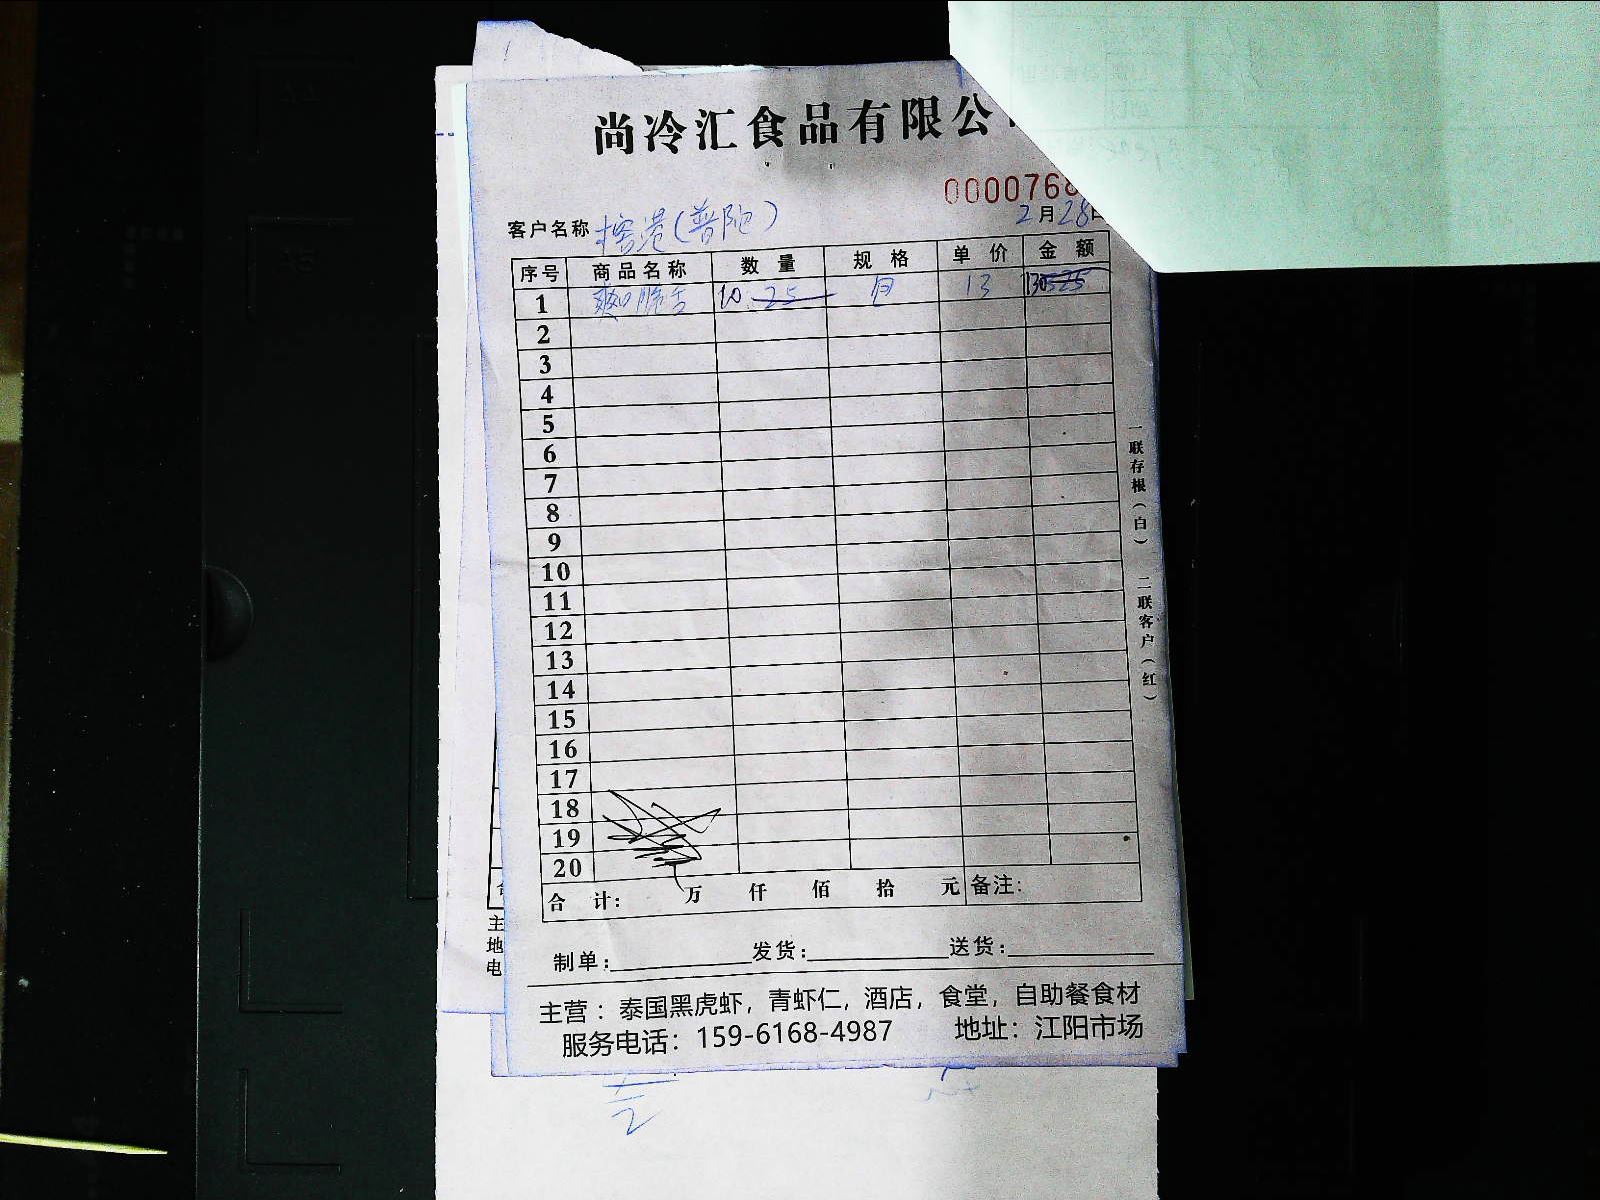 尚冷汇食品有限公
000076
客户名称 榕港(普陀) 2月28日
序号 商品名称 数量 规格 单价 金额
1 爽口脆舌 10 25 包 13 130 325
2
3
4
5
6
7
8
9
10
11
12
13
14
15
16
17
18
19
20
合计: 万 仟 佰 拾 元 备注:
制单: 发货: 送货:
主营：泰国黑虎虾，青虾仁，酒店，食堂，自助餐食材
服务电话：159-6168-4987 地址：江阳市场
一联存根(白) 二联客户(红)
主
地
电